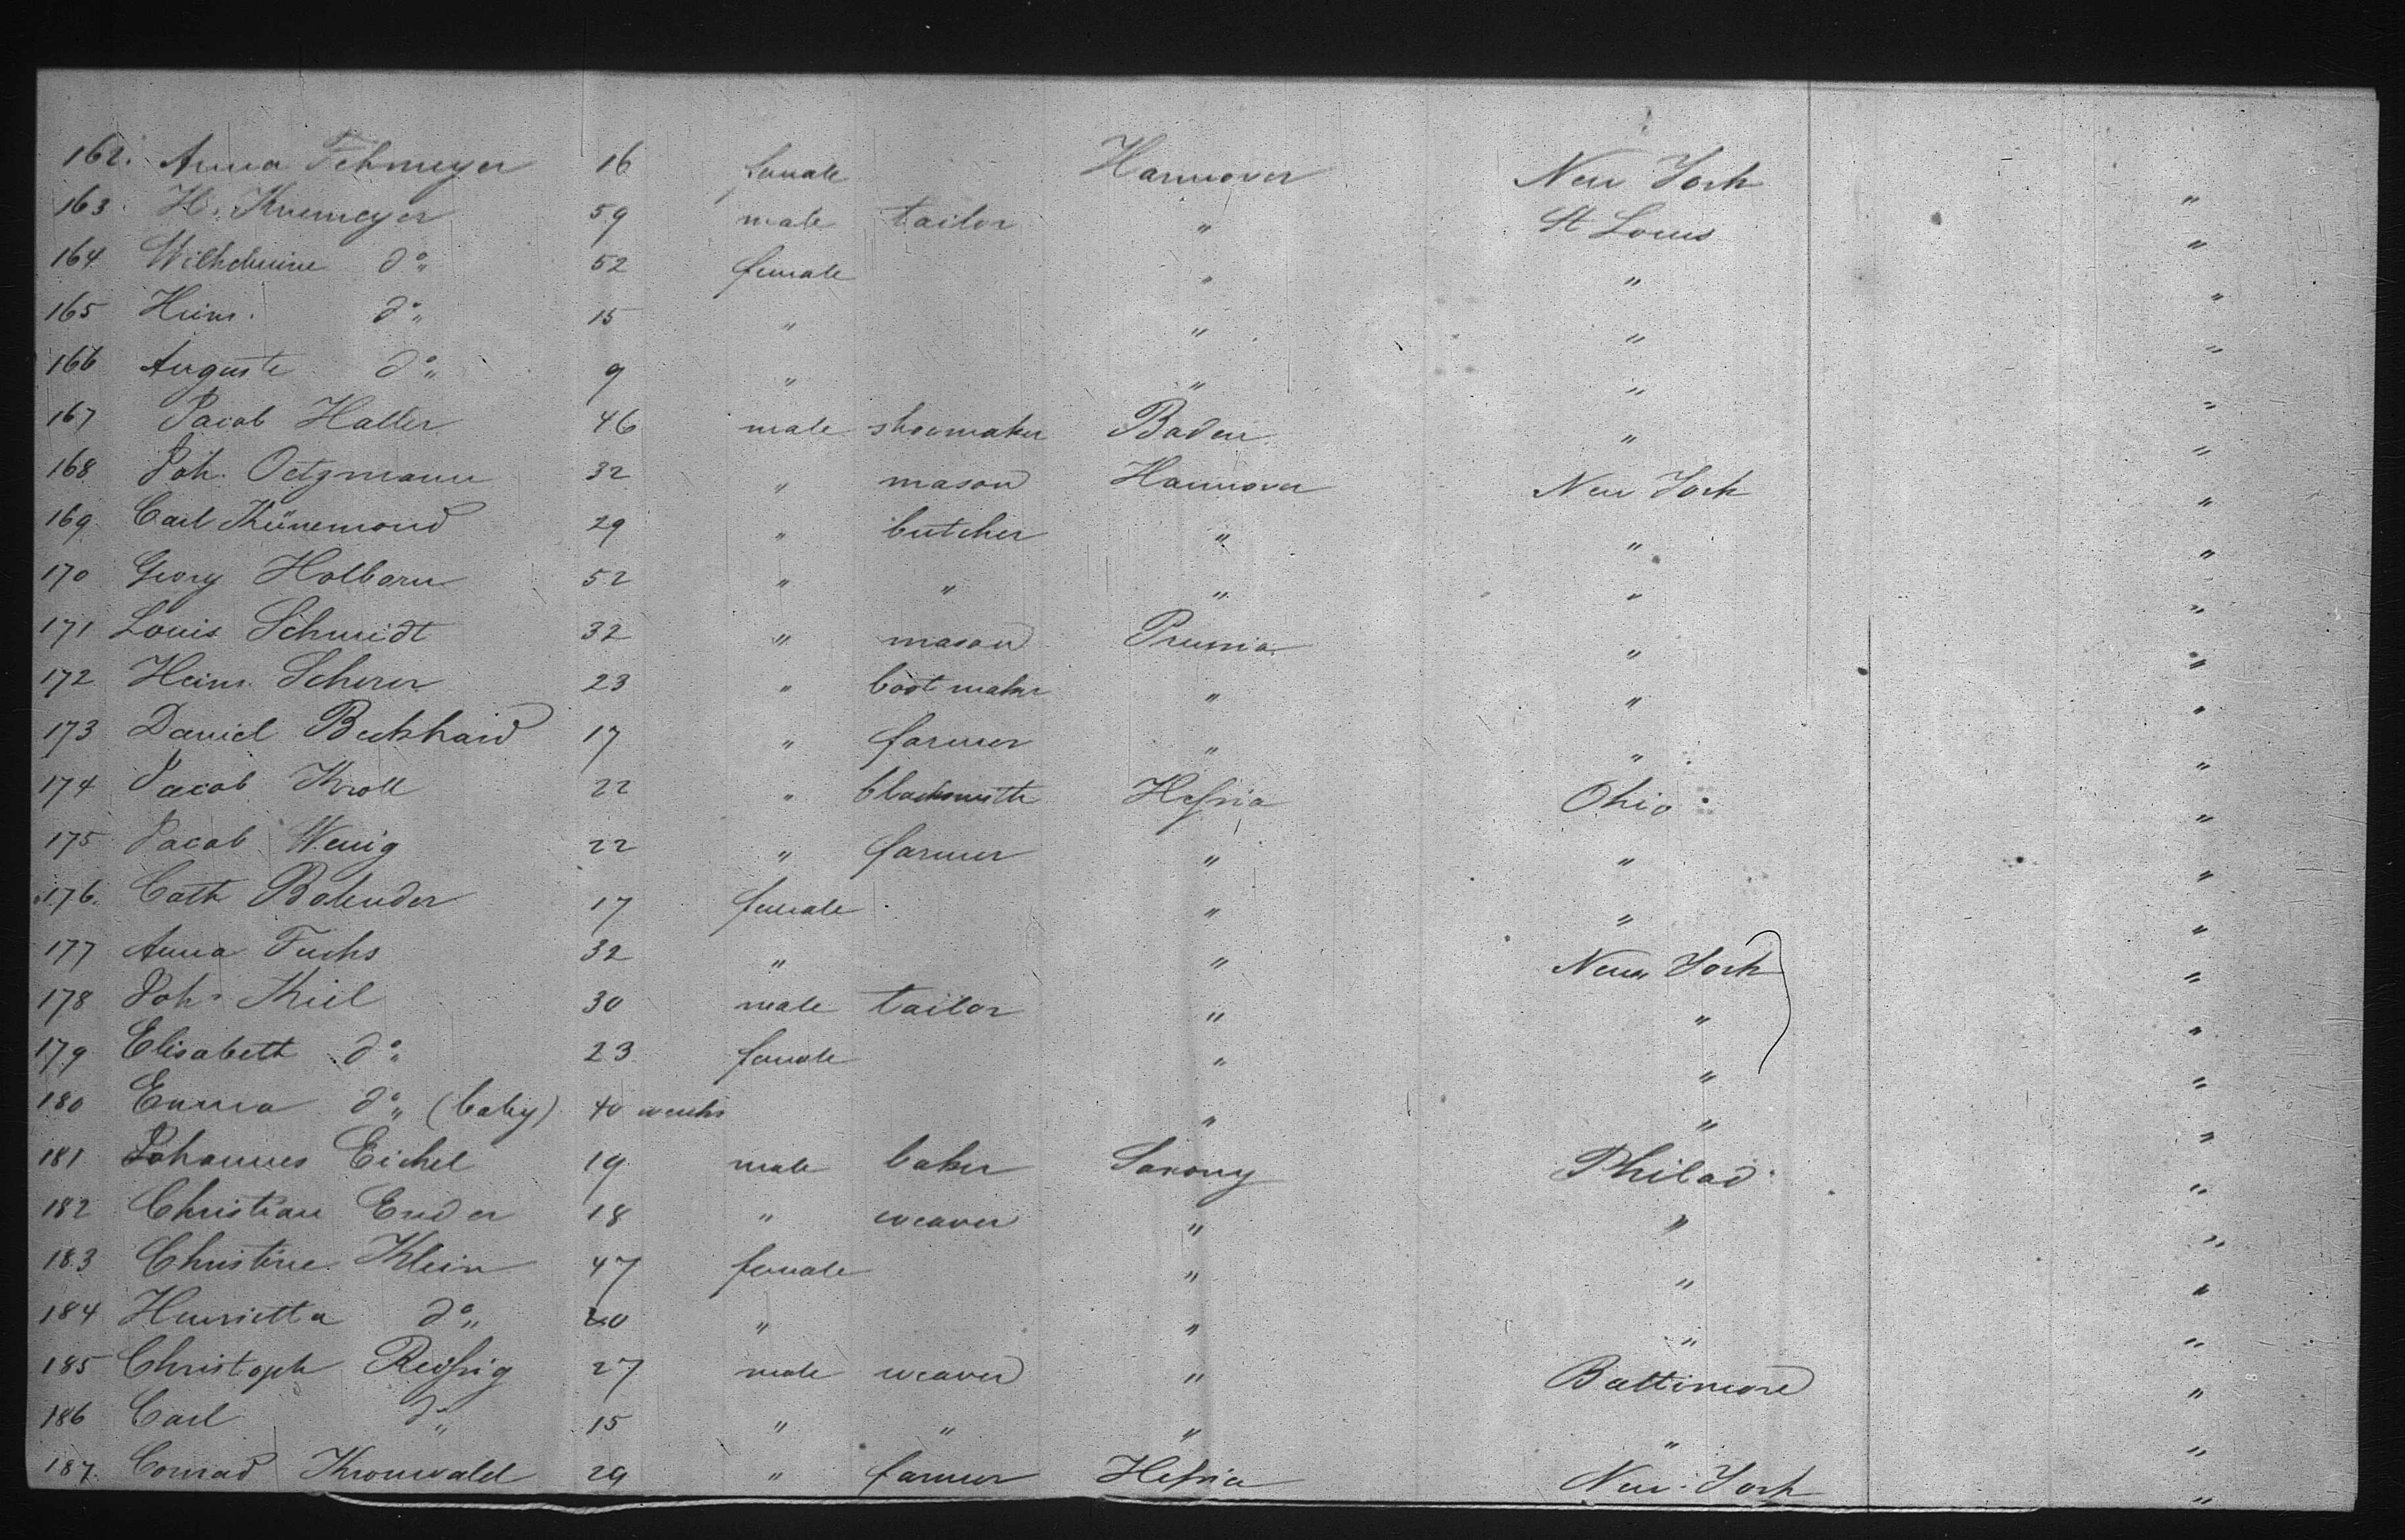 162. Anna Fehmeyer 16 female Hannover New York "
163. H. Kruemeyer 59 male tailor " St Louis "
164. Wilhelmine do" 52 female " " "
165 Heinr. do" 15 " " " "
166 Auguste do" 9 " " " "
167 Jacob Haller 46 male shoemaker Baden " "
168 Joh. Oetzmann 32 " mason Hannover New York "
169. Carl Künemond 29 " butcher " " "
170 Georg Holborn 52 " " " " "
171 Louis Schmidt 32 " mason Prussia " "
172 Heinr. Scherer 23 " bootmaker " " "
173 Daniel Beckhard 17 " farmer " " "
174 Jacob Kroll 22 " blacksmith Hessia Ohio "
175 Jacob Wenig 22 " farmer " " "
176. Cath Bolender 17 female " " "
177 Anna Fuchs 32 " " New York "
178 Joh. Kiel 30 male tailor " " "
179 Elisabeth do" 23 female " " "
180 Emma do" (baby) 40 weeks " " "
181 Johannes Eichel 19 male baker Saxony Philad. "
182 Christian Ender 18 " weaver " " "
183 Christine Klein 47 female " " "
184 Henrietta do" 20 " " " "
185 Christoph Reissig 27 male weaver " Baltimore "
186 Carl do" 15 " " " " "
187. Conrad Kronwald 29 " farmer Hessia New York "